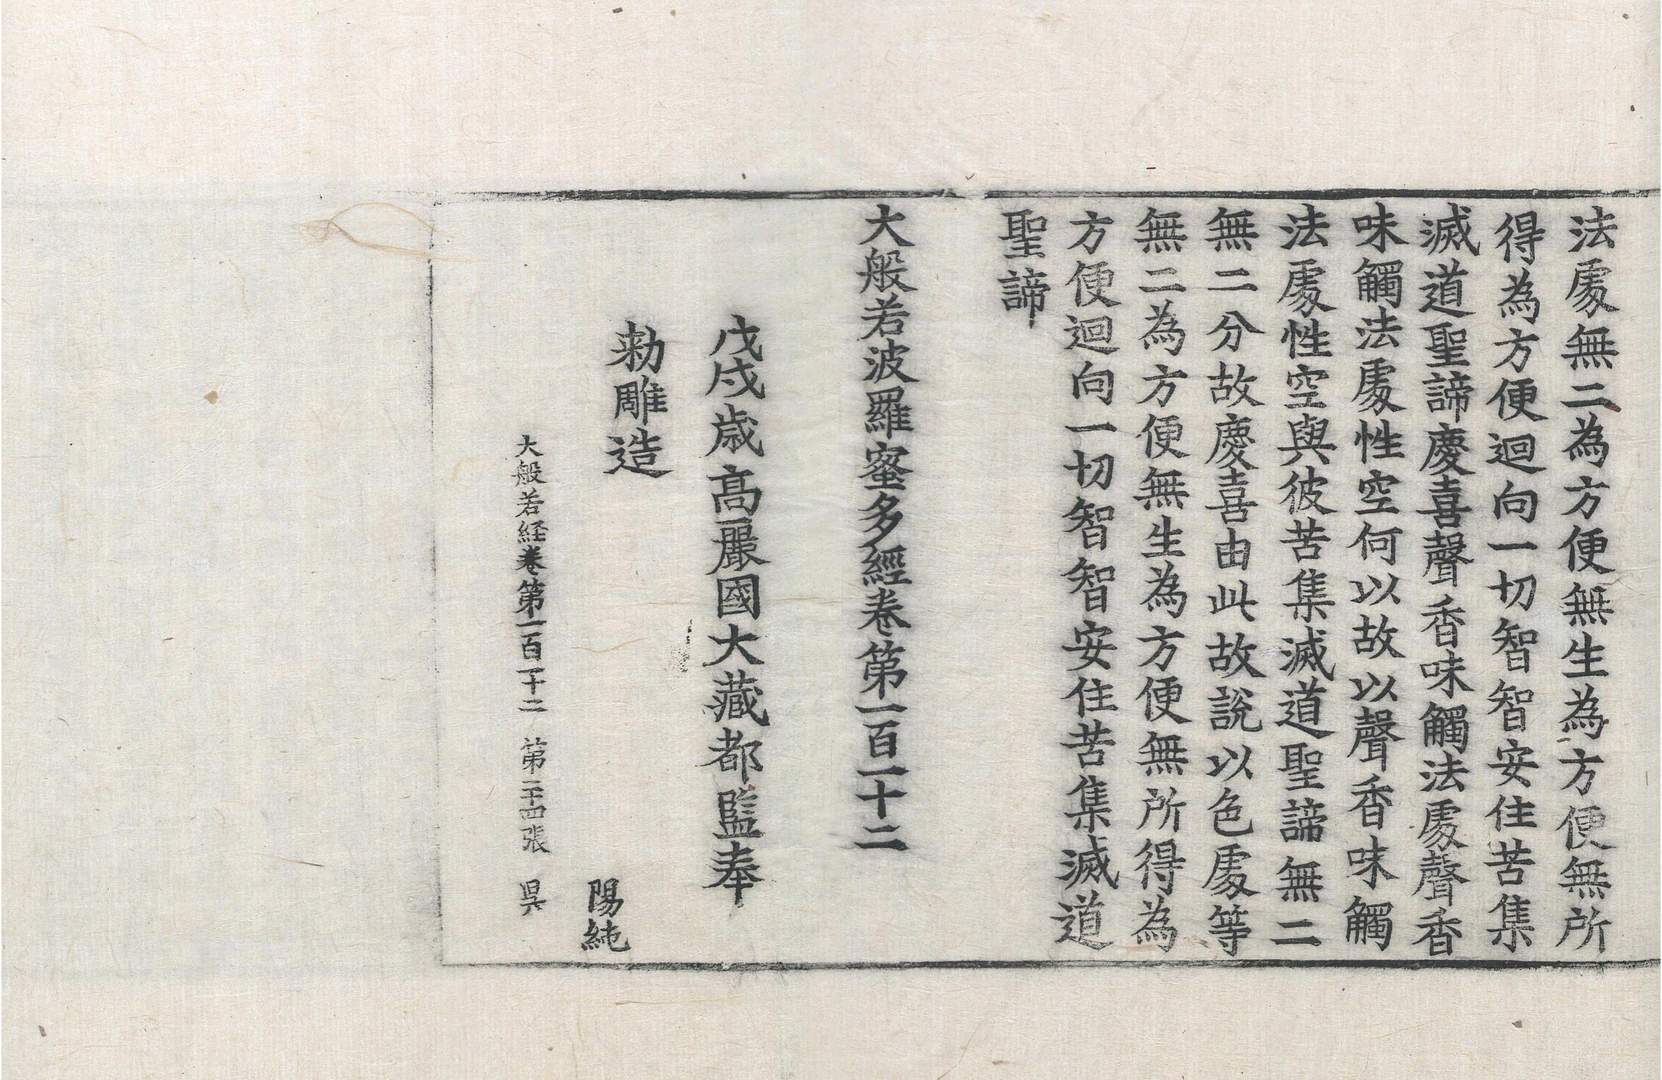 法處無二為方便無生為方便無所
得為方便迴向一切智智安住苦集
滅道聖諦慶喜聲香味觸法處聲香
味觸法處性空何以故以聲香味觸
法處性空與彼苦集滅道聖諦無二
無二分故慶喜由此故說以色處等
無二為方便無生為方便無所得為
方便迴向一切智智安住苦集滅道
聖諦
大般若波羅蜜多經卷第一百一十二
戊戌歲高麗國大藏都監奉
勅雕造
陽純
大般若経卷第一百一十二 第二十四張 吳